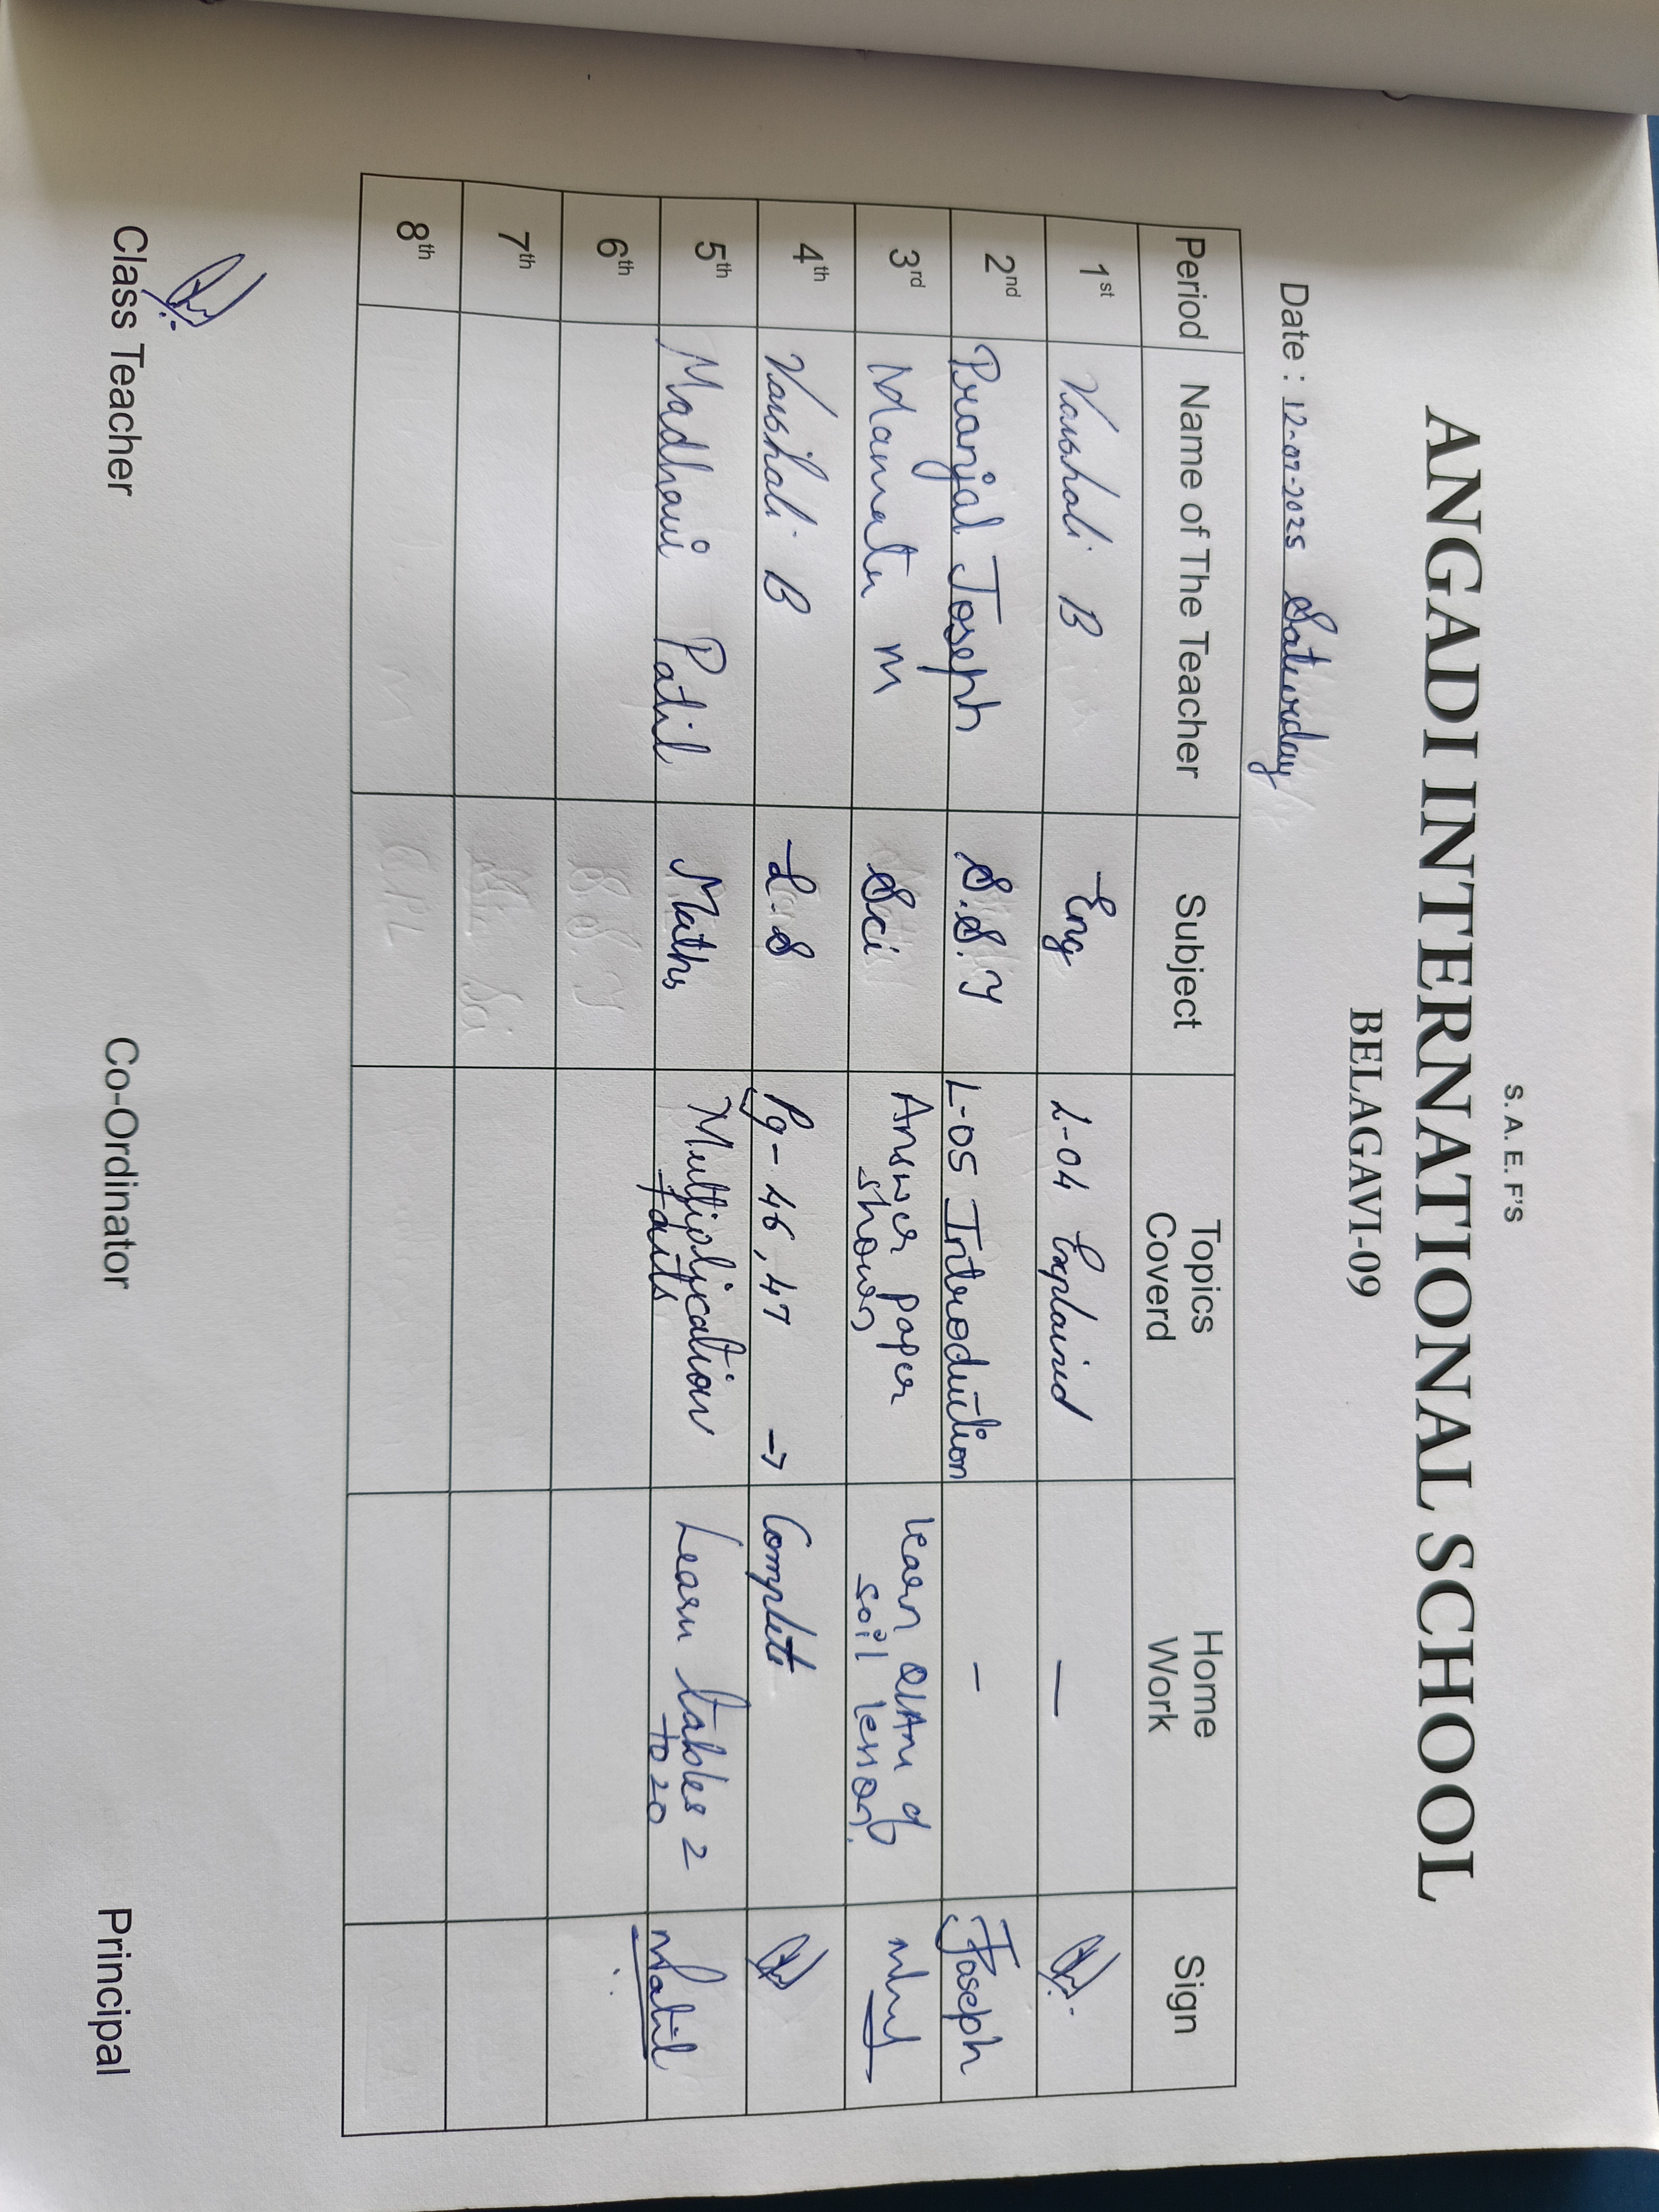 S. A. E. F'S
ANGADI INTERNATIONAL SCHOOL
BELAGAVI-09
Date : 12-07-2025 Saturday
Period Name of The Teacher Subject Topics Coverd Home Work Sign
1st Vaishali B Eng L-04 Explained —
2nd Pranjal Joseph S.S.Y L-05 Introduction - Joseph
3rd Mamata M Sci Answer paper shown learn Q/Ans of soil lesson.
4th Vaishali B L.S Pg-46,47 → Complete
5th Madhavi Patil Maths Multiplication facts Learn tables 2 to 20 MPatil
6th
7th
8th
Class Teacher Co-Ordinator Principal